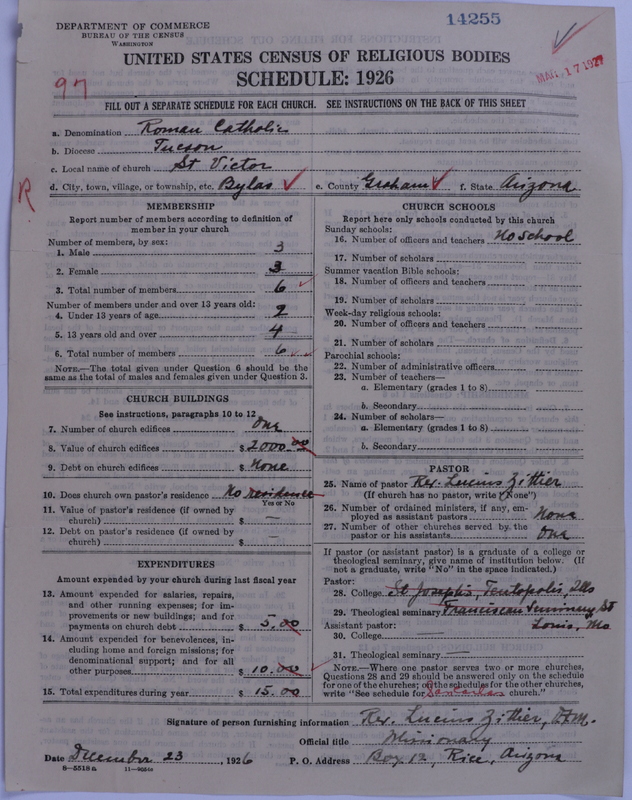 14255
DEPARTMENT OF COMMERCE
BUREAU OF THE CENSUS
WASHINGTON
UNITED STATES CENSUS OF RELIGIOUS BODIES
SCHEDULE: 1926
MAR 17 1927
97
FILL OUT A SEPARATE SCHEDULE FOR EACH CHURCH. SEE INSTRUCTIONS ON THE BACK OF THIS SHEET
a. Denomination Roman Catholic
b. Diocese Tucson
c. Local name of church St Victor
R
d. City, town, village, or township, etc. Bylas e. County Graham f. State Arizona
MEMBERSHIP
Report number of members according to definition of
member in your church
Number of members, by sex:
1. Male 3
2. Female 3
3. Total number of members 6
Number of members under and over 13 years old:
4. Under 13 years of age 2
5. 13 years old and over 4
6. Total number of members 6
NOTE.—The total given under Question 6 should be
same as the total of males and females given under Question 3.
CHURCH BUILDINGS
See instructions, paragraphs 10 to 12
7. Number of church edifices One
8. Value of church edifices $ 2000.00
9. Debt on church edifices $ None
10. Does church own pastor's residence No residence
Yes or No
11. Value of pastor's residence (if owned by
church) $ —
12. Debt on pastor's residence (if owned by
church) $ —
EXPENDITURES
Amount expended by your church during last fiscal year
13. Amount expended for salaries, repairs,
and other running expenses; for im-
provements or new buildings; and for
payments on church debt $ 5.00
14. Amount expended for benevolences, in-
cluding home and foreign missions; for
denominational support; and for all
other purposes $ 10.00
15. Total expenditures during year $ 15.00
CHURCH SCHOOLS
Report here only schools conducted by this church
Sunday schools:
16. Number of officers and teachers No School
17. Number of scholars
Summer vacation Bible schools:
18. Number of officers and teachers
19. Number of scholars
Week-day religious schools:
20. Number of officers and teachers
21. Number of scholars
Parochial schools:
22. Number of administrative officers
23. Number of teachers—
a. Elementary (grades 1 to 8)
b. Secondary
24. Number of scholars—
a. Elementary (grades 1 to 8)
b. Secondary
PASTOR
25. Name of pastor Rev. Lucius Zittier
(If church has no pastor, write "None")
26. Number of ordained ministers, if any, em-
ployed as assistant pastors None
27. Number of other churches served by the
pastor or his assistants One
If pastor (or assistant pastor) is a graduate of a college or
theological seminary, give name of institution below. (If
not a graduate, write "No" in the space indicated.)
Pastor:
28. College St Josephs, Teutopolis, Ills
29. Theological seminary Franciscan Seminary St
Assistant pastor: Louis, Mo
30. College —
31. Theological seminary —
NOTE.—Where one pastor serves two or more churches,
Questions 28 and 29 should be answered only on the schedule
for one of the churches; on the schedules for the other churches,
write "See schedule for church."
Signature of person furnishing information Rev. Lucius Zittier, O.F.M.
Official title Missionary
Date December 23, 1926 P. O. Address Box 12, Rice, Arizona
8—5518a 11—9054a